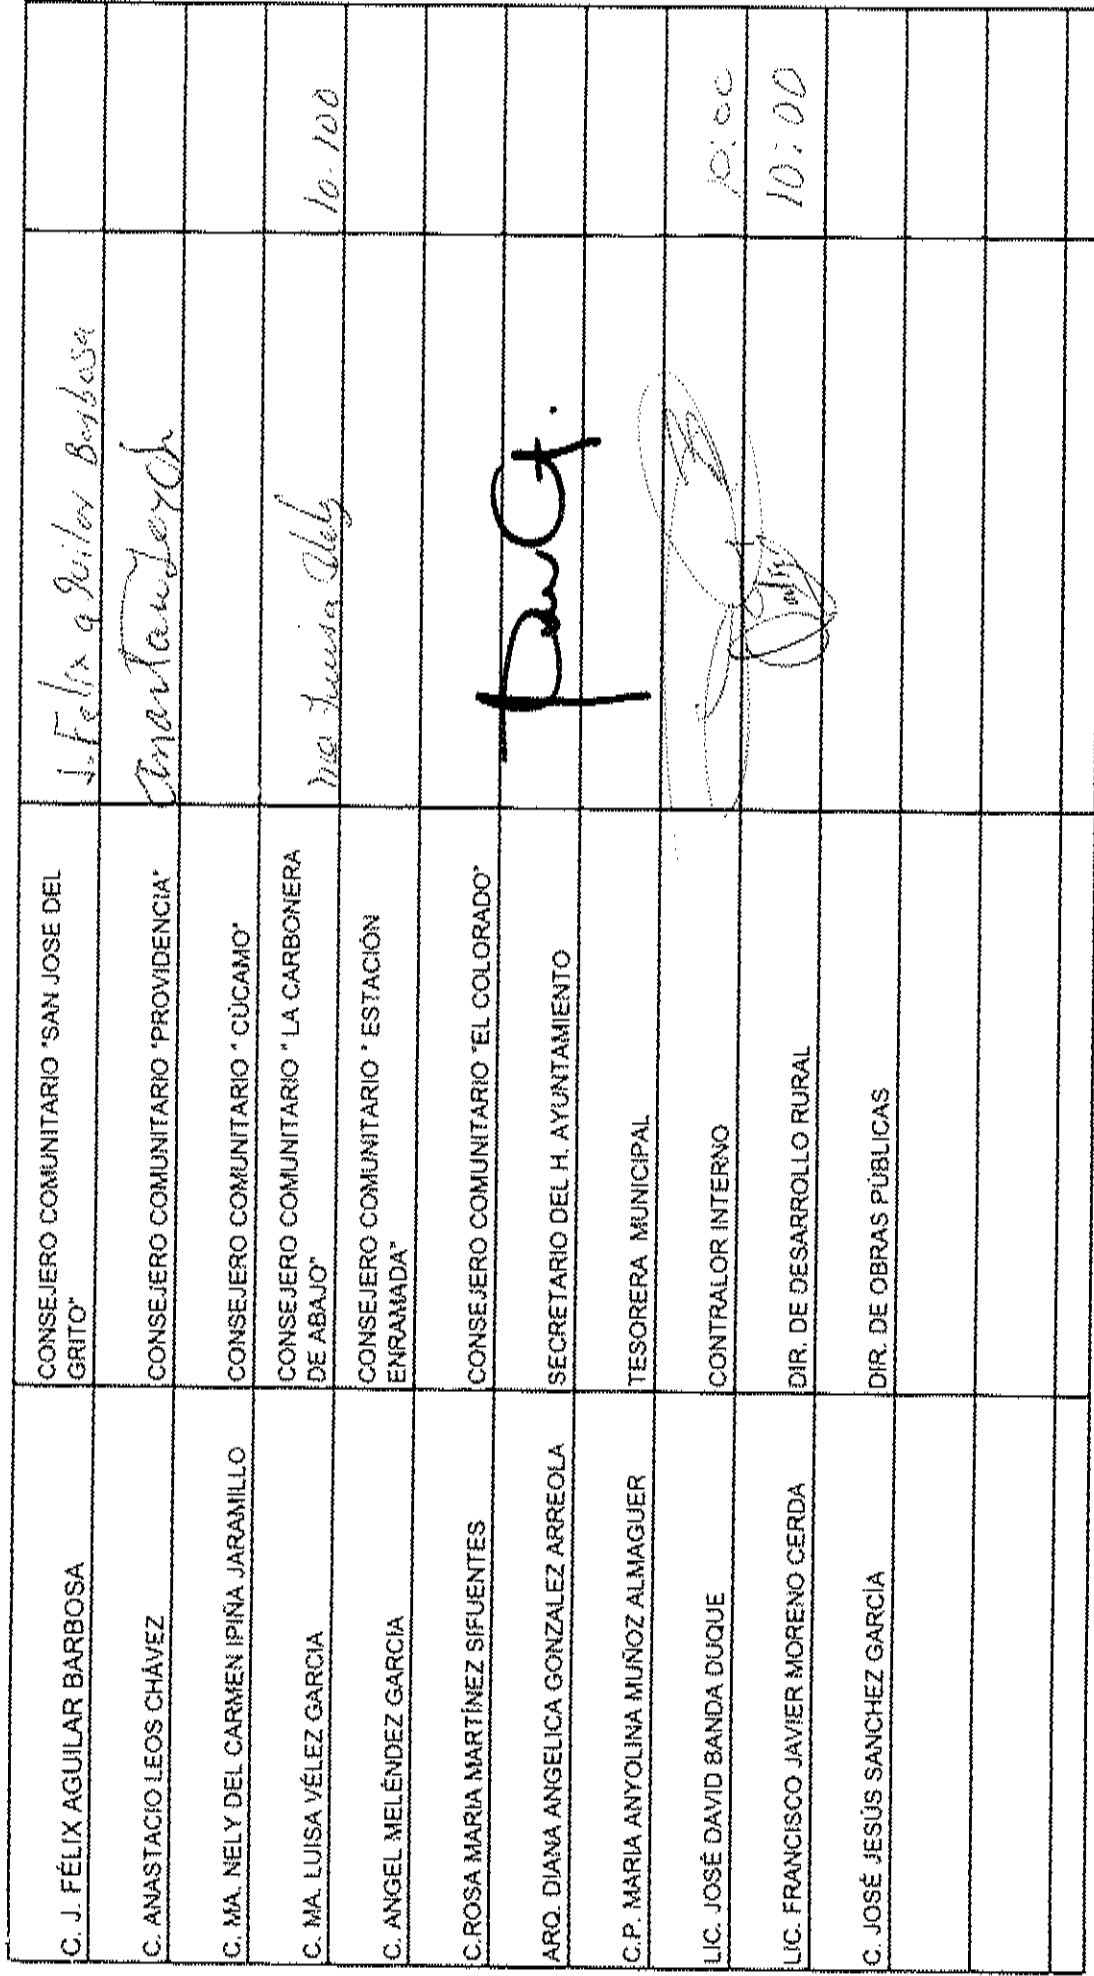 C. J. FÉLIX AGUILAR BARBOSA
CONSEJERO COMUNITARIO "SAN JOSE DEL
GRITO"
J. Felix aguilar Barbosa
C. ANASTACIO LEOS CHÁVEZ
CONSEJERO COMUNITARIO "PROVIDENCIA"
C. MA. NELY DEL CARMEN IPIÑA JARAMILLO
CONSEJERO COMUNITARIO " CÚCAMO"
C. MA. LUISA VÉLEZ GARCIA
CONSEJERO COMUNITARIO " LA CARBONERA
DE ABAJO"
ma Luisa Velez
10.100
C. ANGEL MELÉNDEZ GARCIA
CONSEJERO COMUNITARIO " ESTACIÓN
ENRAMADA"
C.ROSA MARIA MARTÍNEZ SIFUENTES
CONSEJERO COMUNITARIO "EL COLORADO"
ARQ. DIANA ANGELICA GONZALEZ ARREOLA
SECRETARIO DEL H. AYUNTAMIENTO
C.P. MARIA ANYOLINA MUÑOZ ALMAGUER
TESORERA MUNICIPAL
LIC. JOSÉ DAVID BANDA DUQUE
CONTRALOR INTERNO
10:00
LIC. FRANCISCO JAVIER MORENO CERDA
DIR. DE DESARROLLO RURAL
10:00
C. JOSÉ JESÚS SANCHEZ GARCÍA
DIR. DE OBRAS PÚBLICAS